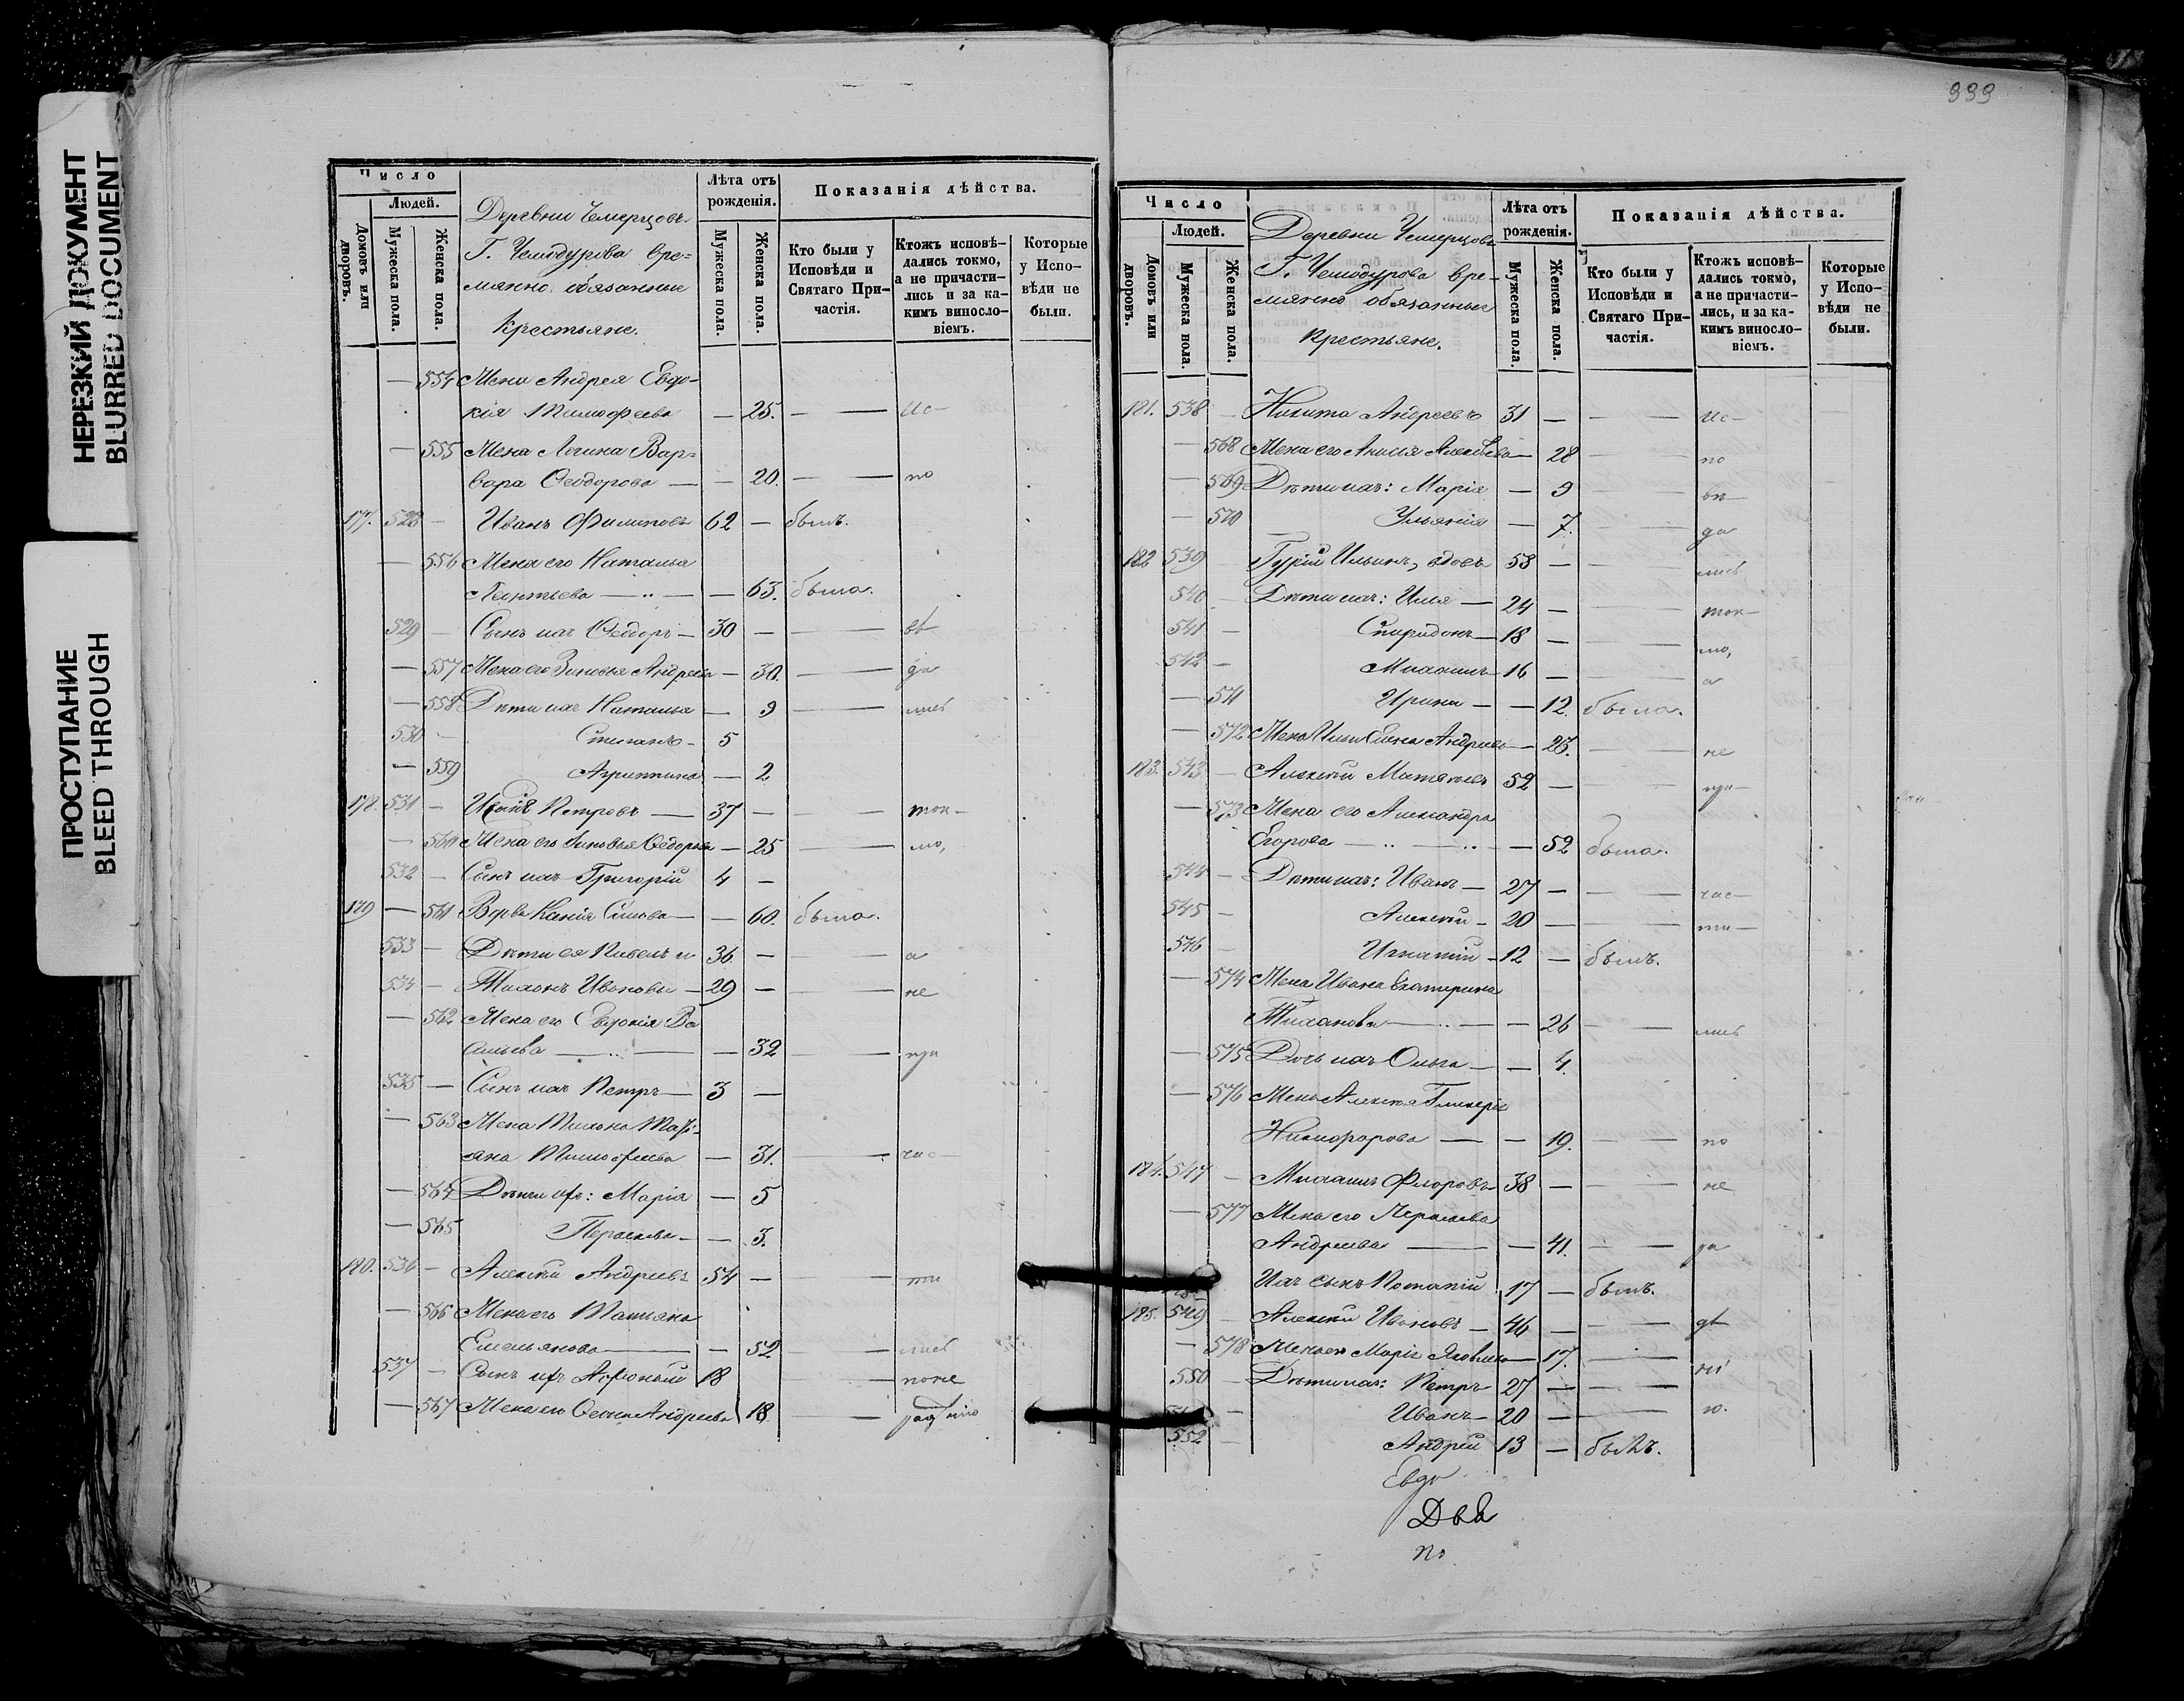 НЕРЕЗКИЙ ДОКУМЕНТ
BLURRED DOCUMENT
ПРОСТУПАНИЕ
BLEED THROUGH
Число
Людей.
Домовъ или дворовъ.
Мужеска пола.
Женска пола.
Деревни Чемерцовъ
Г. Чемодурова вре=
мянно обязанные
Крестьяне.
Лѣта отъ рожденія.
Мужеска пола.
Женска пола.
Показанія дѣйства.
Кто были у Исповѣди и Святаго Причастія.
Ктожъ исповѣдались токмо, а не причастились и за какимъ винословіемъ.
Которые у Исповѣди не были.
— 554 Жена Андрея Евдо-
кія Тимофеева — 25. — — ис-
— 555 Жена Логина Вар=
вара Ѳеодорова — — 20. — — по
177. 528 — Иванъ Филиповъ 62 — былъ.
— 556 Жена его Наталья
Леонтьева — — 63. была.
529 — Сынъ ихъ Ѳеодоръ — 30 — — вѣ
— 557 Жена его Зиновья Андреева — 30. — — да
— 558 Дѣти ихъ Наталья — 9 — лись
530 — Степанъ — 5
— 559 Агрипина — 2
178. 531 — Петровъ — 37 — — — ток-
— 560 Жена его Зиновья Ѳедорова — 25 — мо,
532 — Сынъ ихъ Григорій 4 —
179 — 561 Вдова Ксенія Силова — — 60. была.
533 — Дѣти ея Павелъ и 36 — — а
534 — Тихонъ Ивановы — 29 — — не
— 562 Жена его Евдокія Ва
сильева — — 32 — при
535 — Сынъ ихъ Петръ — 3 —
— 563 Жена Тихона Тать-
яна Тимофеева — 31. — час-
— 564 Дѣти ихъ: Марія — 5
— 565 Параскева — — 3.
180. 536 — Алексѣй Андреевъ 54 — — ти
— 566 Жена его Татьяна
Емельянова — — 52 — лись
537 — Сынъ ихъ Афонасій 18 — поне
— 567 Жена его Андреева 18. —
999
Число
Людей.
Домовъ или дворовъ.
Мужеска пола.
Женска пола.
Деревни Чемерцовъ
Г. Чемодурова вре-
мянно обязанные
Крестьяне.
Лѣта отъ рожденія.
Мужеска пола.
Женска пола.
Показанія дѣйства.
Кто были у Исповѣди и Святаго Причастія.
Ктожъ исповѣдались токмо, а не причастились, и за какимъ винословіемъ.
Которые у Исповѣди не были.
181. 538 — Никита Андреевъ 31 — — — ис-
— 568 Жена его Алексѣева — 28 — по
— 569 Дѣти ихъ: Марія — 9 — вѣ-
— 570 Ульянія — 7. — да
182 539 Гурій Ильинъ, вдовъ 53 — — лись
540 — Дѣти ихъ: Илья — 24 — — ток-
541 — Спиридонъ — 18 — — мо,
542 — Михаилъ — 16 — — а
— 571 Ирина — — 12. была.
— 572 Жена Ильи Елена Андреева — 23. — не
183. 543 — Алексѣй 52 — — при-
— 573 Жена его Александра
Егорова — — 52 была.
544 — Дѣти ихъ: Иванъ — 27 — — час-
545 — Алексѣй — 20 — — ти-
546 — Игнатій — 12 — былъ.
— 574 Жена Ивана Екатерина
Тиханова — — 26 — лись
— 575 Дочь ихъ Ольга — — 4.
— 576 Жена Алексѣя Гликерія
Никифорова — — 19. — по
184. 547 — Михаилъ Флоровъ 38 — — не
— 577 Жена его Параскева
Андреева — — 41. — ра
Ихъ сынъ Потапій 17 — былъ.
185. 549 — Алексѣй Ивановъ — 46 — — дѣ
— 578 Жена его Марія Яковлева — 17. — ні
550 — Дѣти ихъ: Петръ 27 — —
— Иванъ — 20 — — ю.
552 — Андрей 13 — былъ.
Евдо
Два